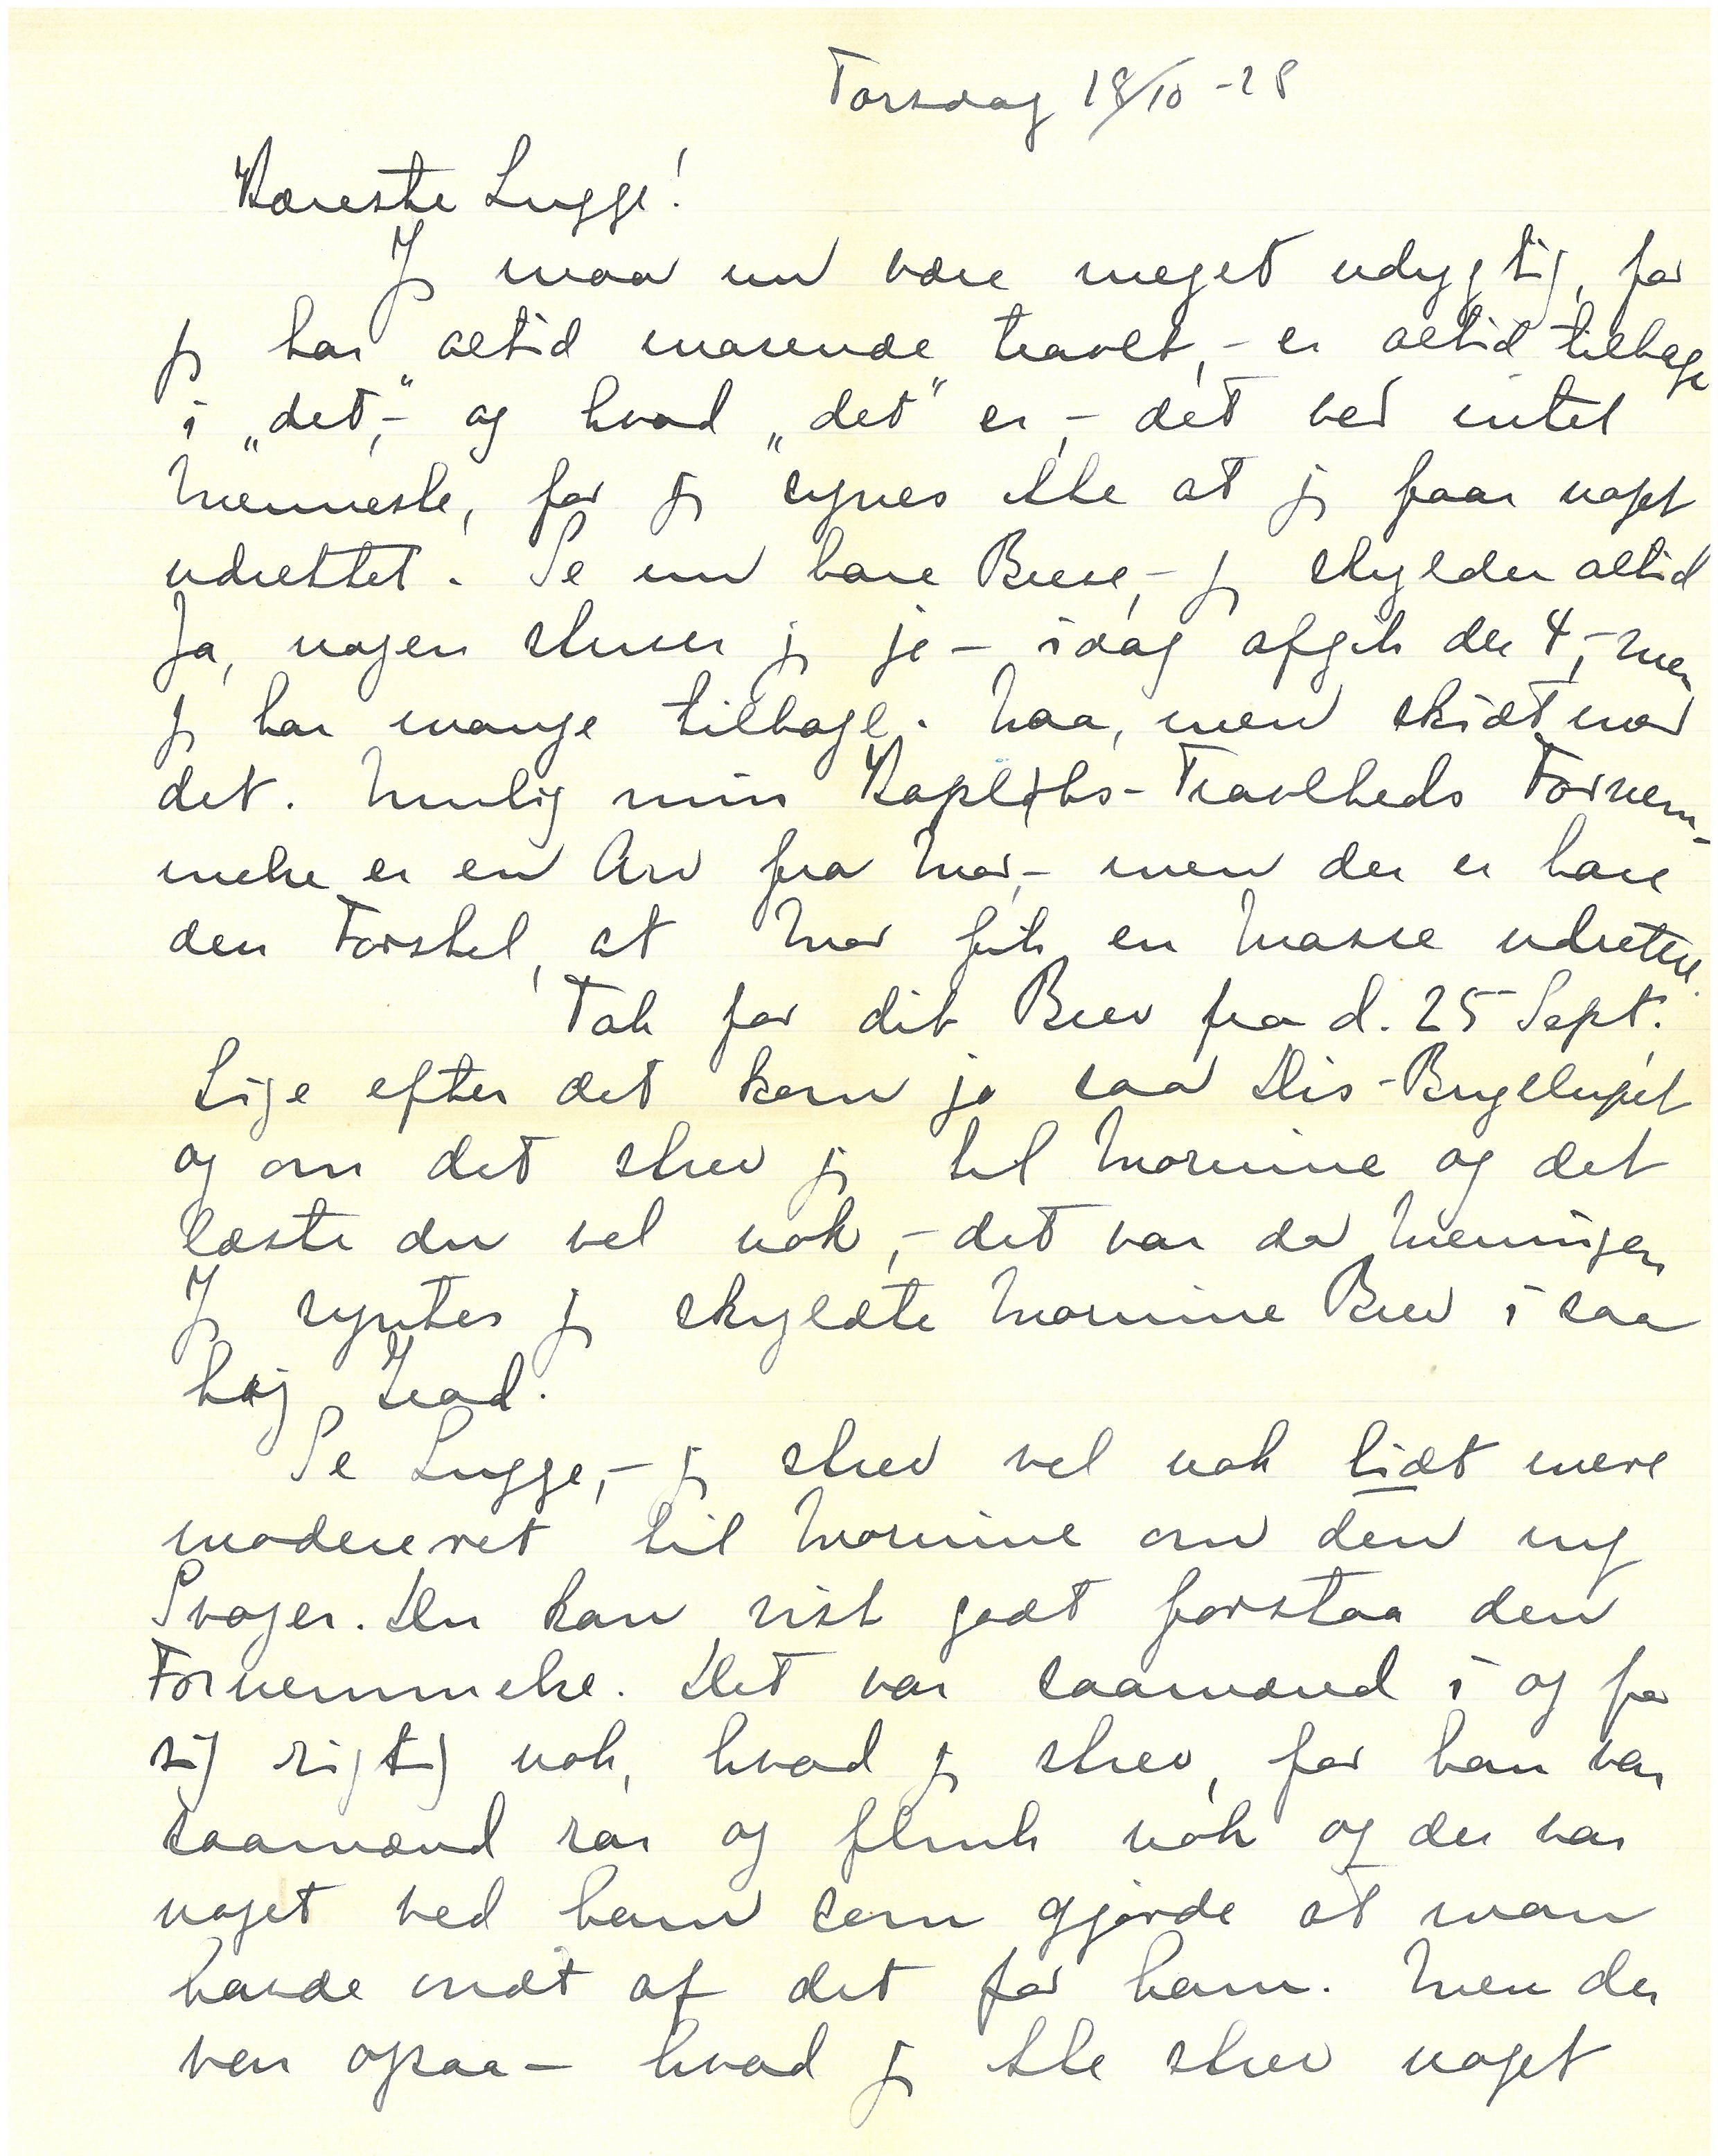 Torsdag 18/10 - 28
Kæreste Lugge!
Jg maa nu være meget udygtig, for
jg har altid masende travlt, - er altid tilbage
i „det,-" og hvad „det" er, - det ved intet
Menneske, for jg synes ikke at jg faar noget
udrettet. Se nu bare Breve, - jg skylder altid
Ja, nogen skriver jg jo - idag afgik der 4, - men
jg har mange tilbage. Naa, men skidt med
det. Mulig min Kapløbs-Travlheds Fornem-
melse er en Arv fra Mor, - men der er bare
den Forskel, at Mor fik en Masse udrettet.
Tak for dit Brev fra d. 25 Sept.
Lige efter det kom jo saa Dis-Bryllupet
og om det skrev jg til Mornine og det
læste du vel nok, - det var da Meningen
Jg syntes jg skyldte Mornine Brev i saa
høj Grad.
Se Lugge, - jg skrev vel nok lidt mere
modereret til Mornine om den ny
Svoger. Du kan vist godt forstaa den
Fornemmelse. Det var saamænd i og for
sig rigtig nok, hvad jg skrev, for han var
saamænd rar og flink nok og der var
noget ved ham som gjorde at man
havde ondt af det for ham. Men der
var ogsaa - hvad jg ikke skrev noget